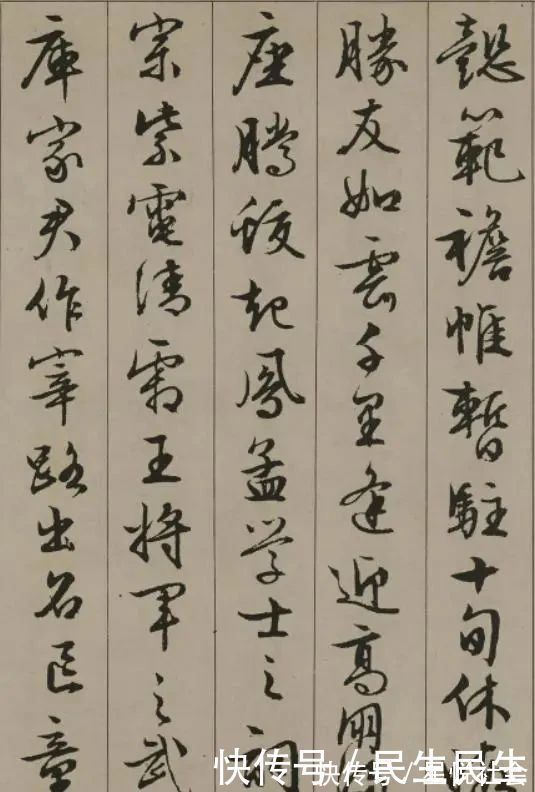 懿範襜帷暫駐十旬休
勝友如雲千里逢迎高朋
座騰蛟起鳳孟學士之詞
宗紫電清霜王將軍之武
庫家君作宰路出名區童
快传号 / 民生民生
快传号/